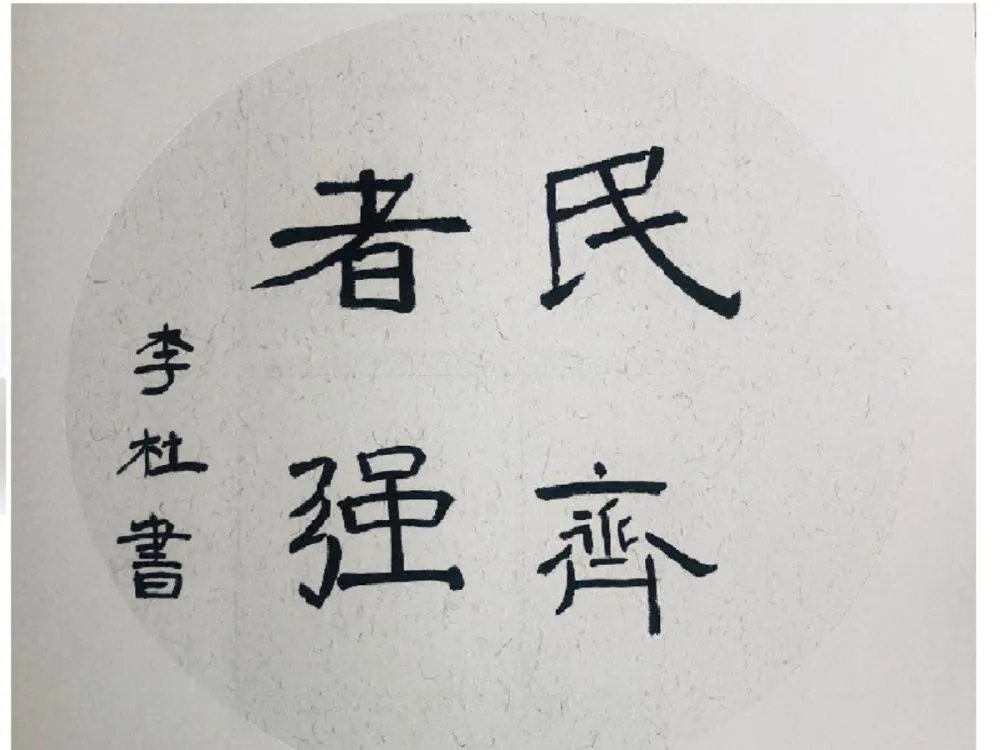 民齊
者强
李杜書